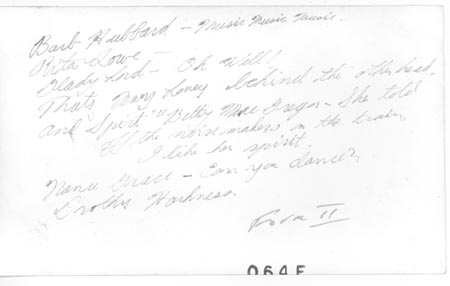 Barb Hubbard - Music Music Music.
Rita Lowe -
Glady Lord - Oh Will!
That's Mary Loney behind the other head.
And Spirit "" Betty Mac Gregor - She told
off the noise makers on the train,
I like her spirit.
Nance Grace - Can you dance?
Dorothy Harkness.
Form II
064F